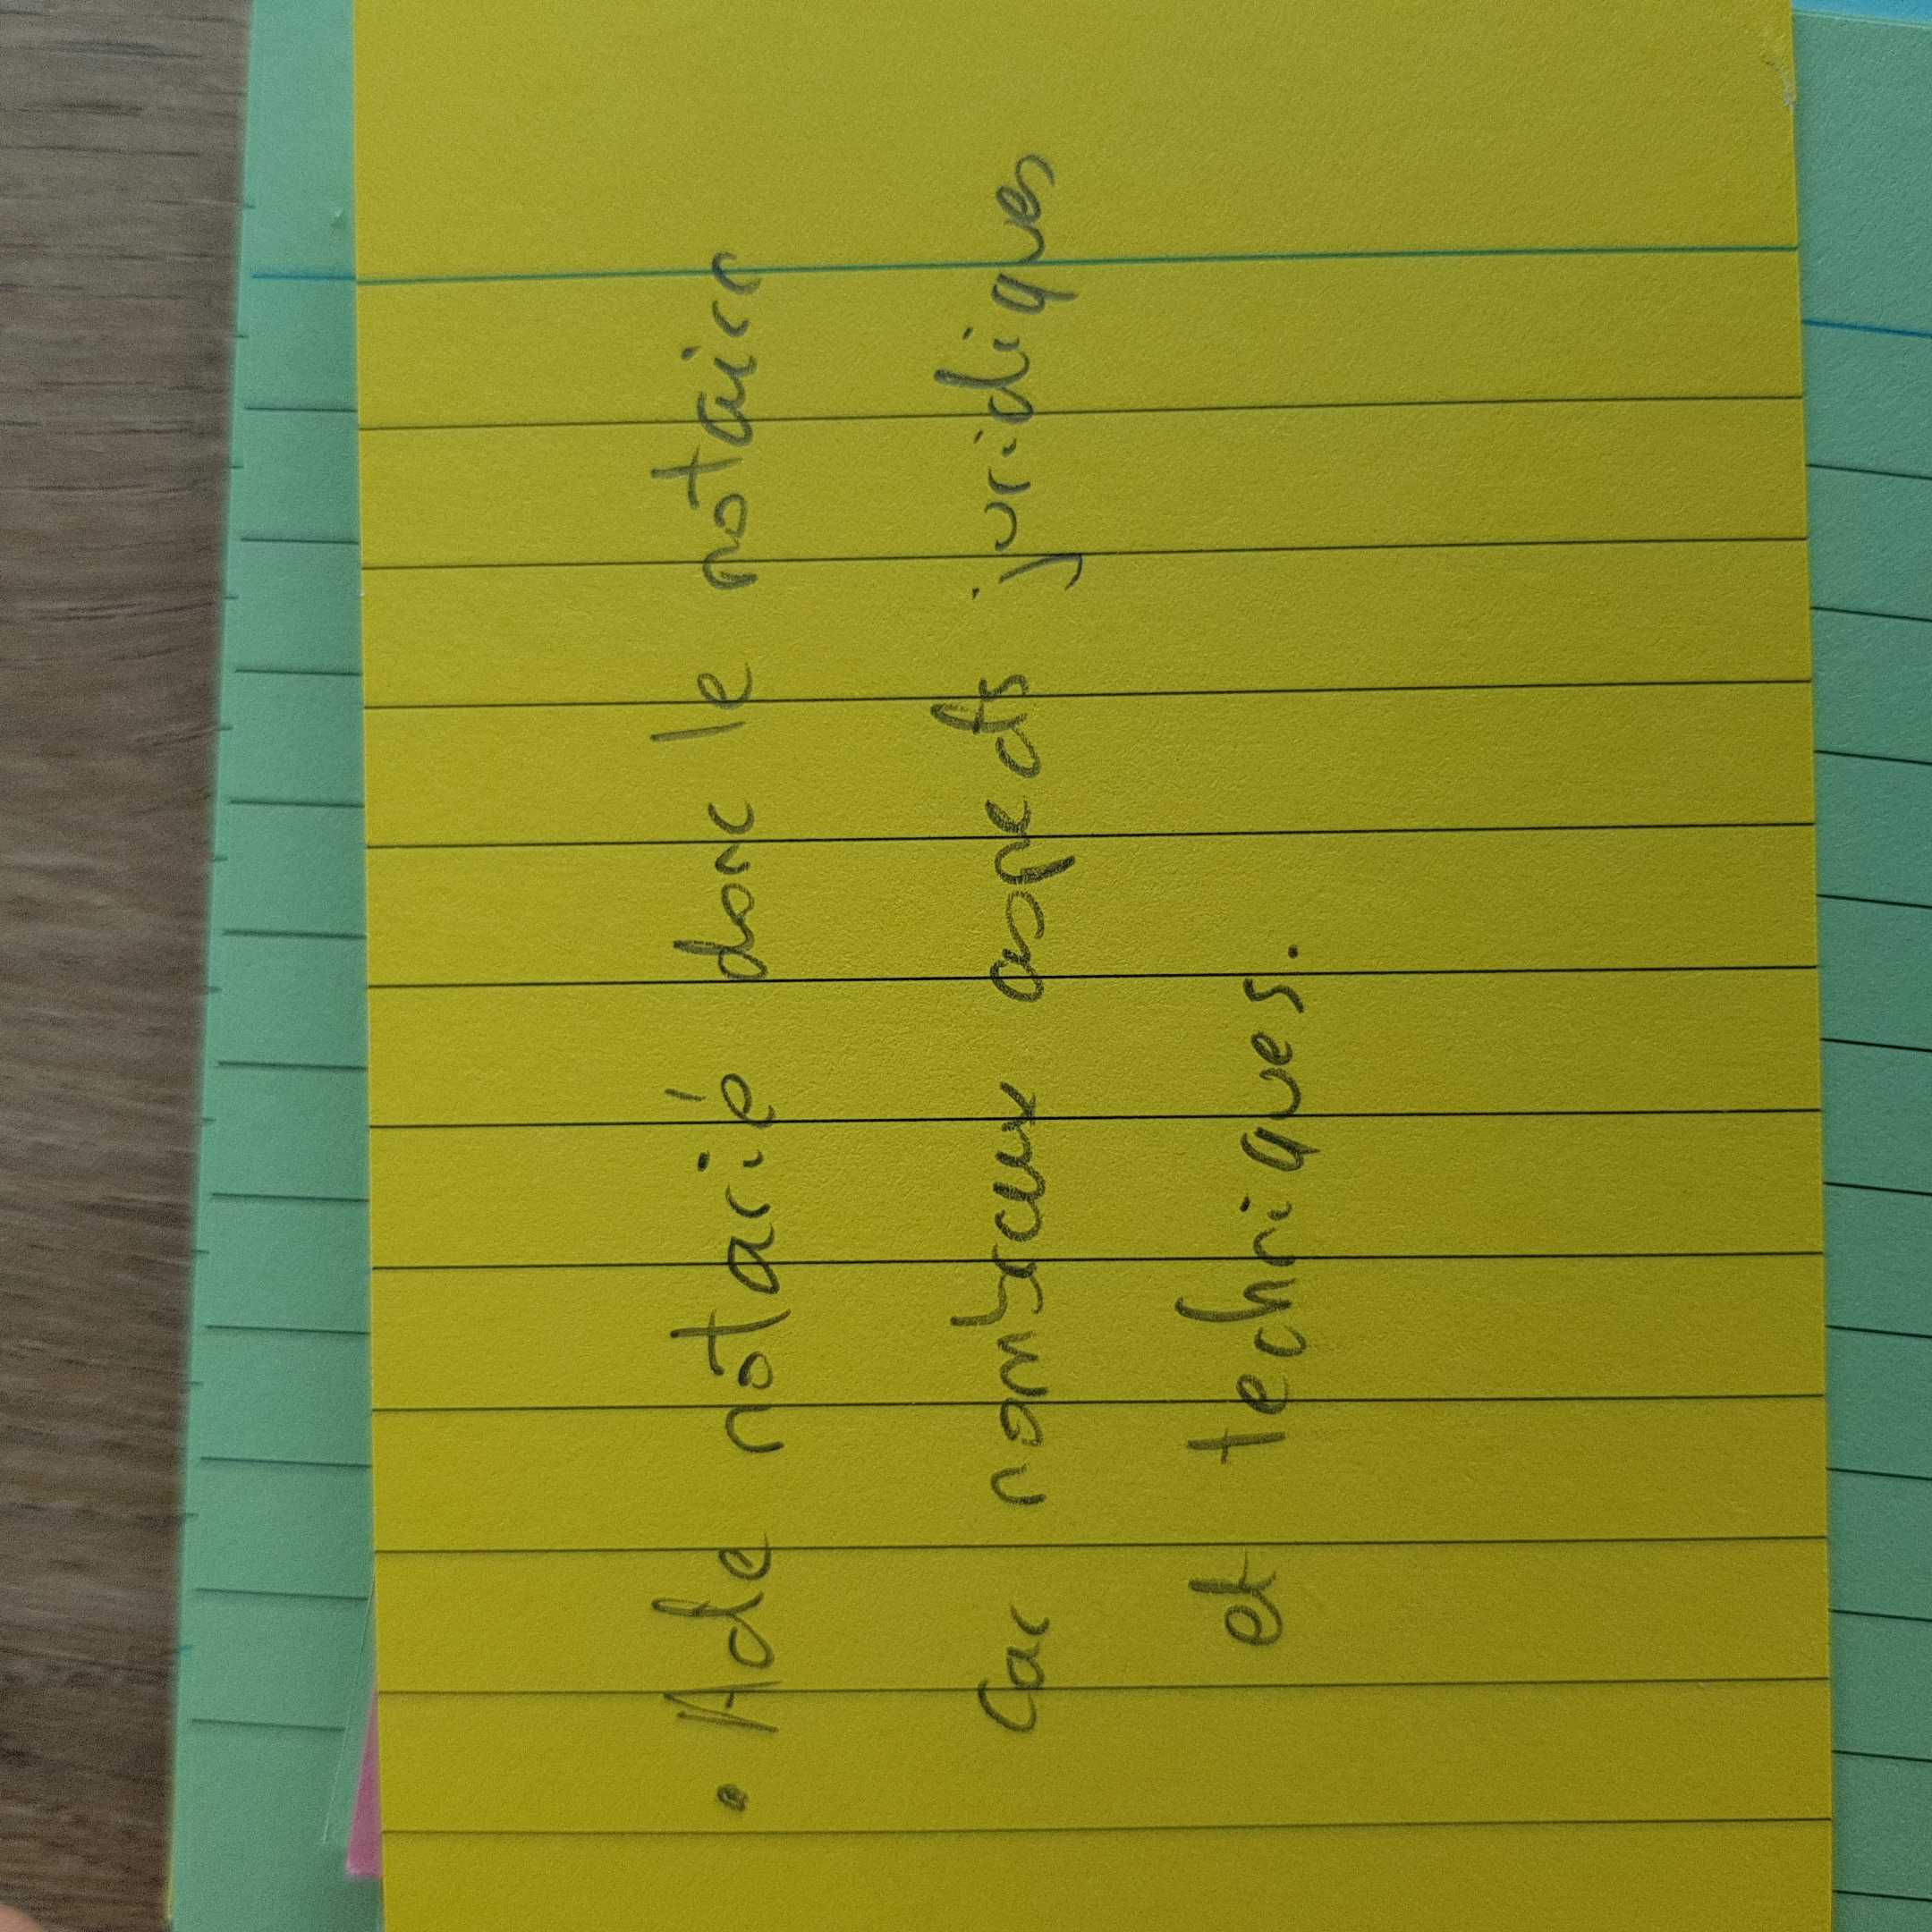 • Acte notarié donc le notaire
Car nombreux aspects juridiques
et techniques.